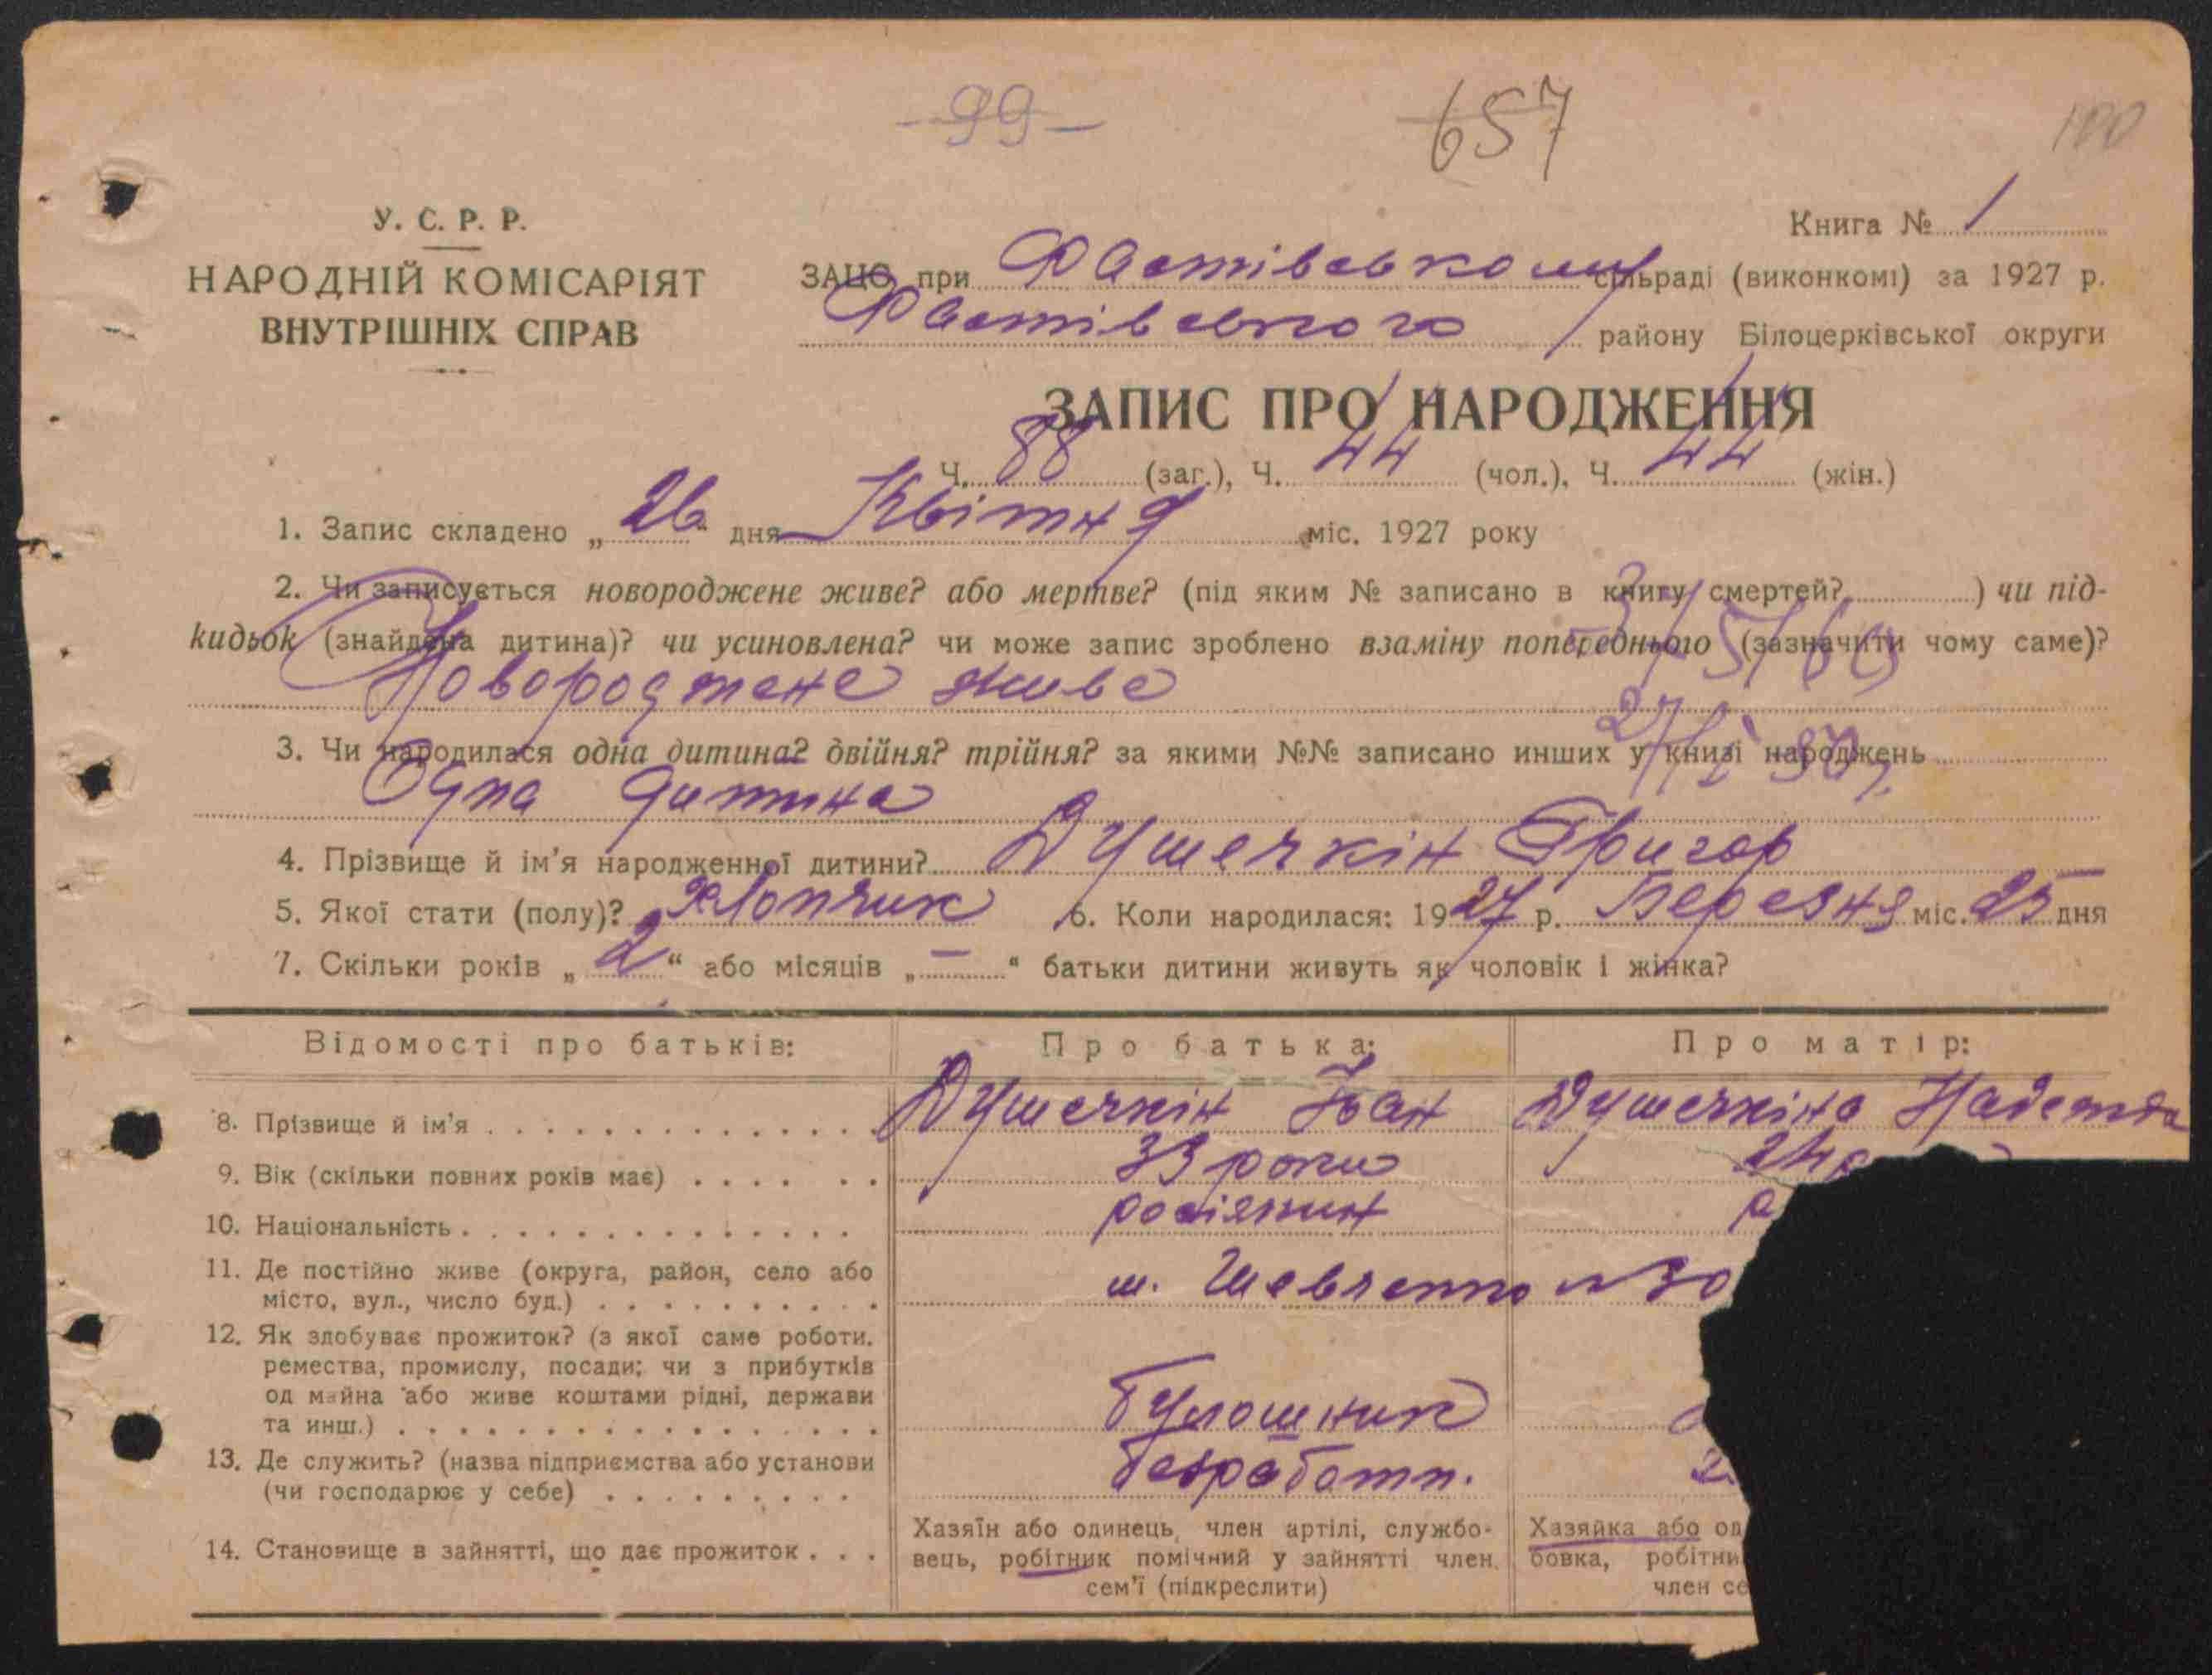 -99-
657
100
У. С. Р. Р.
НАРОДНІЙ КОМІСАРІЯТ
ВНУТРІШНІХ СПРАВ
Книга № 1
ЗАЦС при Фастівському сільраді (виконкомі) за 1927 р.
Фастівського району Білоцерківської округи
ЗАПИС ПРО НАРОДЖЕННЯ
Ч. 88 (заг.), Ч. 44 (чол.), Ч. 44 (жін.)
1. Запис складено „ 26 “ дня Квітня міс. 1927 року
2. Чи записується новороджене живе? або мертве? (під яким № записано в книгу смертей? ) чи під-
кидьок (знайдена дитина)? чи усиновлена? чи може запис зроблено взаміну попереднього (зазначити чому саме)?
Новороджене живе
3. Чи народилася одна дитина? двійня? трійня? за якими №№ записано инших у книзі народжень
Одна дитина
4. Прізвище й ім'я народженної дитини? Душечкін Григор
5. Якої стати (полу)? Хлопчик 6. Коли народилася: 1927 р. Березня міс. 25 дня
7. Скільки років „ 2 “ або місяців „ — “ батьки дитини живуть як чоловік і жінка?
Відомості про батьків: Про батька: Про матір:
8. Прізвище й ім'я Душечкін Іван Душечкіна Надежда
9. Вік (скільки повних років має) 33 роки 24
10. Національність росіянин р
11. Де постійно живе (округа, район, село або
місто, вул., число буд.) ш. Шевченко № 30
12. Як здобуває прожиток? (з якої саме роботи.
ремества, промислу, посади; чи з прибутків
од майна або живе коштами рідні, держави
та инш.) булошник
13. Де служить? (назва підприємства або установи
(чи господарює у себе) безработн.
14. Становище в зайнятті, що дає прожиток
Хазяїн або одинець, член артілі, службо-
вець, робітник помічний у зайнятті член.
сем'ї (підкреслити)
Хазяйка або од
бовка, робітни
член се